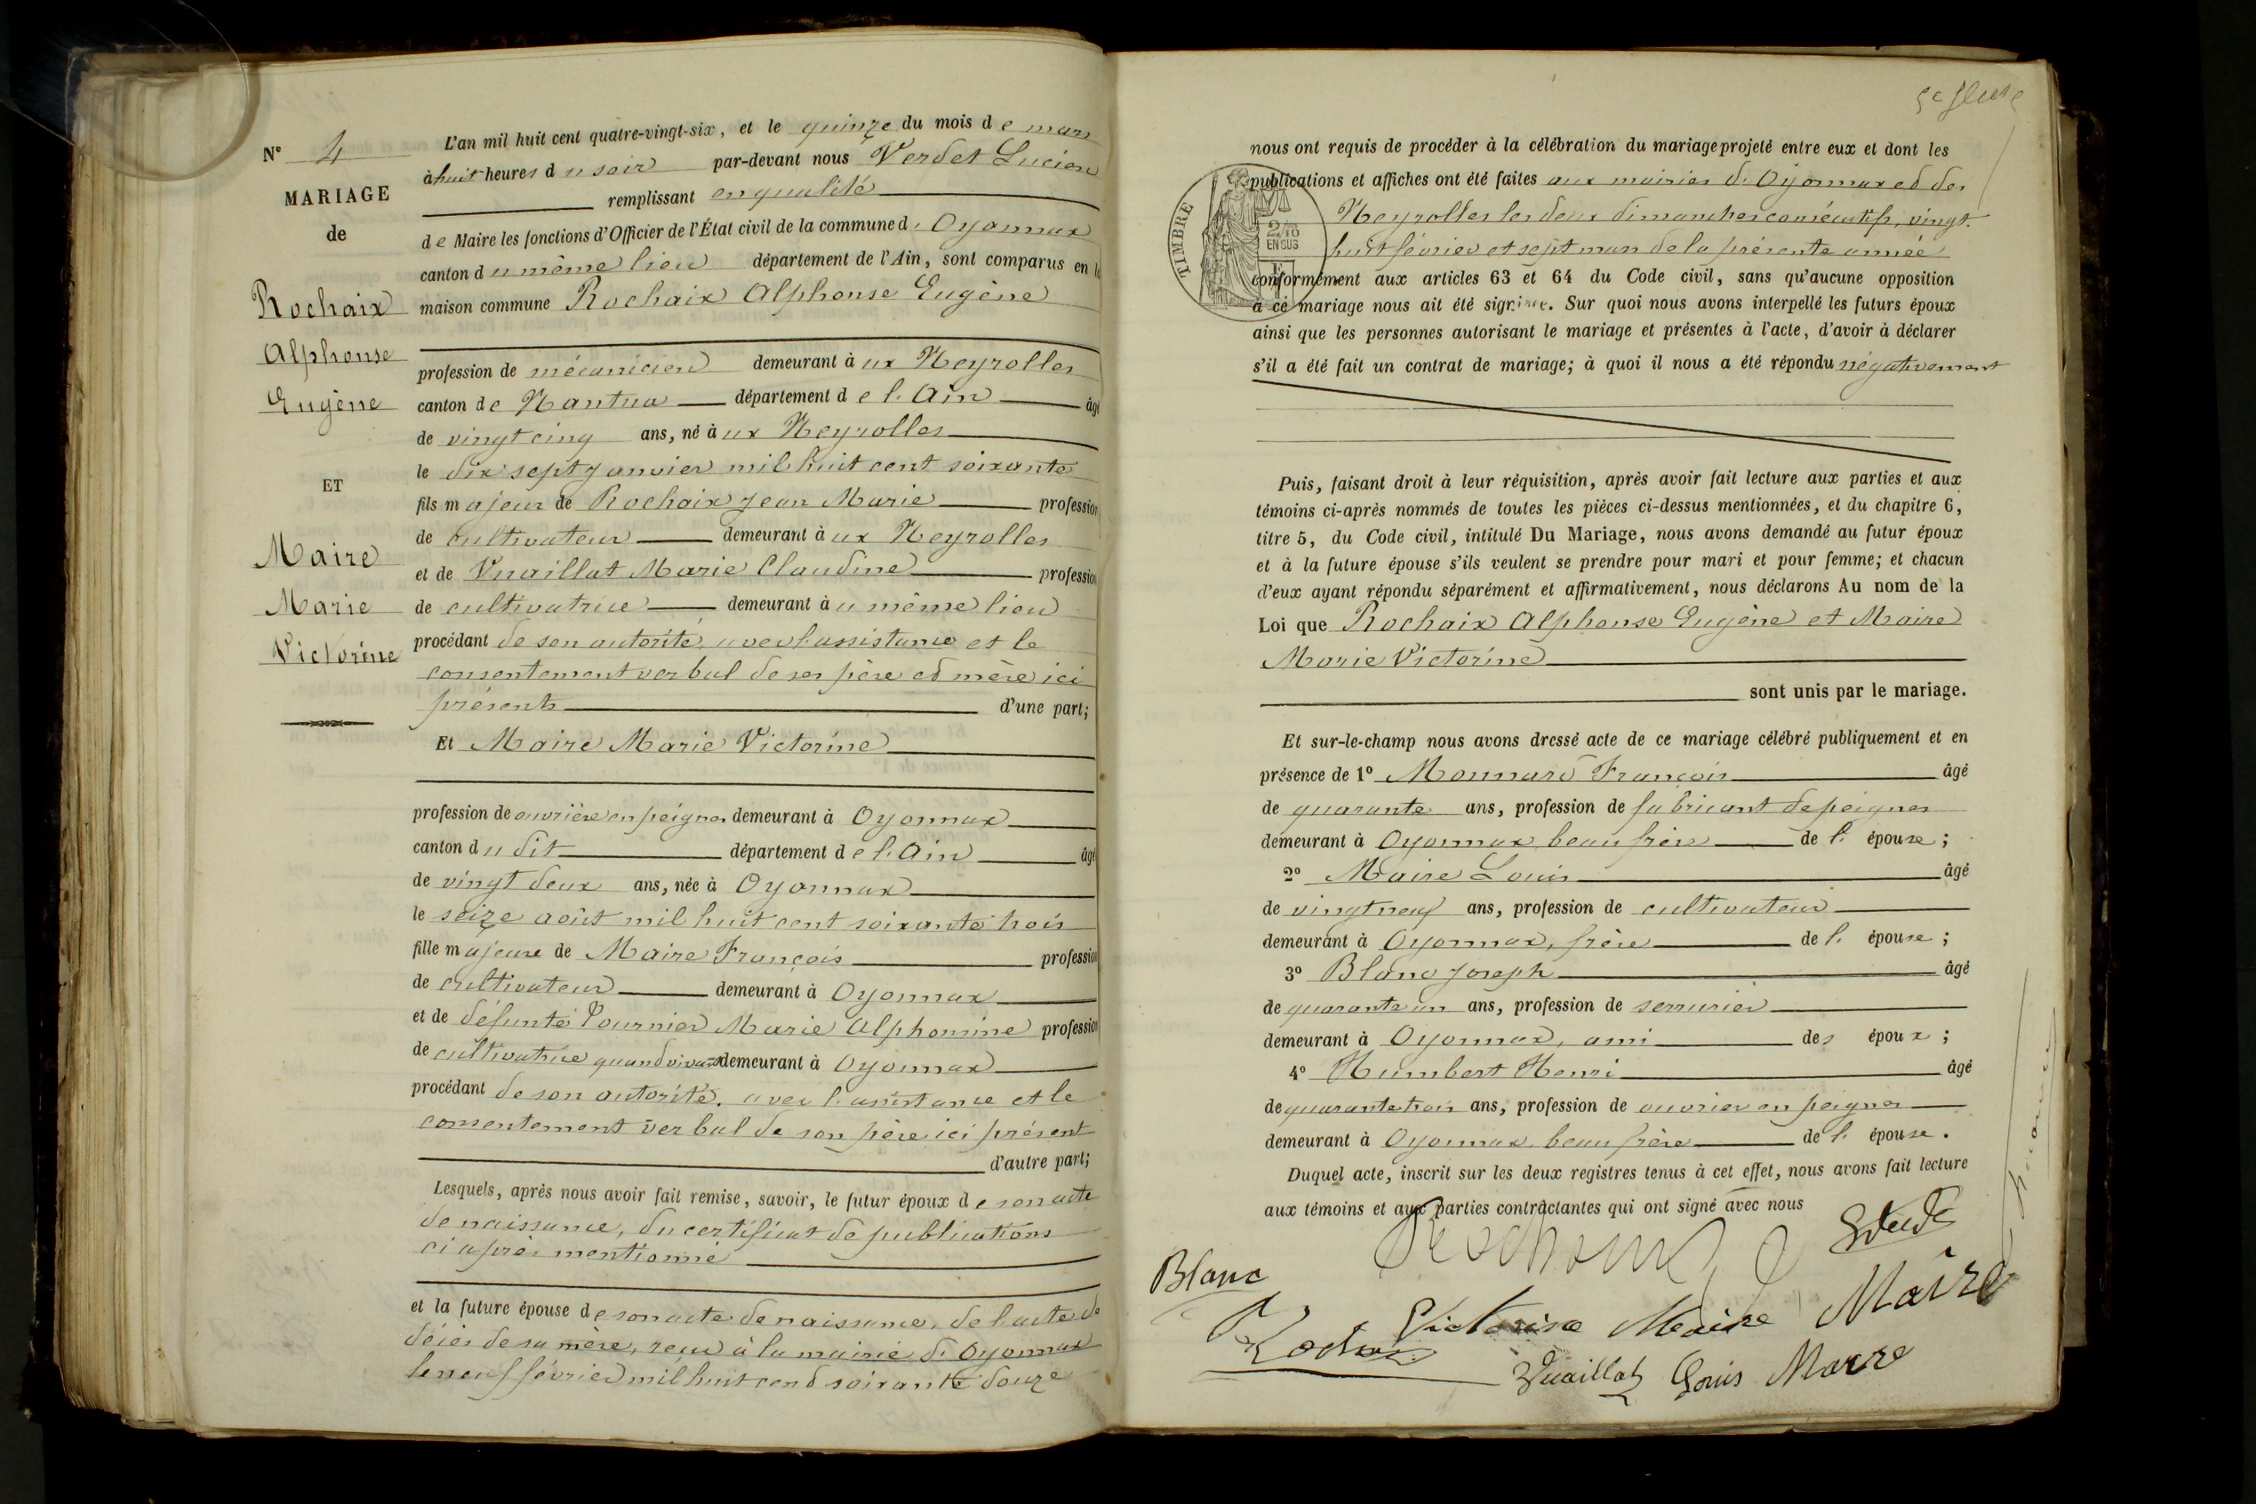 N° 4
MARIAGE
de
Rochaix
Alphonse
Eugène
ET
Maire
Marie
Victorine
L'an mil huit cent quatre-vingt-six, et le quinze du mois de mars
à huit heures du soir par-devant nous Verdet Lucien
remplissant en qualité
de Maire les fonctions d'Officier de l'État civil de la commune d'Oyonnax
canton du même lieu département de l'Ain, sont comparus en la
maison commune Rochaix Alphonse Eugène
profession de mécanicien demeurant à ux Neyrolles
canton de Nantua département de l'Ain âgé
de vingt cinq ans, né à ux Neyrolles
le dix sept janvier mil huit cent soixante
fils majeur de Rochaix Jean Marie profession
de cultivateur demeurant à ux Neyrolles
et de Vuaillat Marie Claudine profession
de cultivatrice demeurant à u même lieu
procédant de son autorité, avec l'assistance et le
consentement verbal de ses père et mère ici
présents d'une part;
Et Maire Marie Victorine
profession de ouvrière en peignes demeurant à Oyonnax
canton dudit département de l'Ain âgé
de vingt deux ans, née à Oyonnax
le seize août mil huit cent soixante trois
fille majeure de Maire François profession
de cultivateur demeurant à Oyonnax
et de défunte Pournier Marie Alphonsine profession
de cultivatrice quand vivait demeurant à Oyonnax
procédant de son autorité, avec l'assistance et le
consentement verbal de son père ici présent
d'autre part;
Lesquels, après nous avoir fait remise, savoir, le futur époux de son acte
de naissance, du certificat de publications
ci après mentionné
et la future épouse de son acte de naissance, de l'acte de
décès de sa mère, reçu à la mairie d'Oyonnax
le neuf février mil huit cent soixante douze
nous ont requis de procéder à la célébration du mariage projeté entre eux et dont les
publications et affiches ont été faites aux mairies d'Oyonnax et des
Neyrolles les deux dimanches consécutifs, vingt
huit février et sept mars de la présente année
TIMBRE
2/10
EN SUS
conformément aux articles 63 et 64 du Code civil, sans qu'aucune opposition
à ce mariage nous ait été signifiée. Sur quoi nous avons interpellé les futurs époux
ainsi que les personnes autorisant le mariage et présentes à l'acte, d'avoir à déclarer
s'il a été fait un contrat de mariage; à quoi il nous a été répondu négativement
Puis, faisant droit à leur réquisition, après avoir fait lecture aux parties et aux
témoins ci-après nommés de toutes les pièces ci-dessus mentionnées, et du chapitre 6,
titre 5, du Code civil, intitulé Du Mariage, nous avons demandé au futur époux
et à la future épouse s'ils veulent se prendre pour mari et pour femme; et chacun
d'eux ayant répondu séparément et affirmativement, nous déclarons Au nom de la
Loi que Rochaix Alphonse Eugène et Maire
Marie Victorine
sont unis par le mariage.
Et sur-le-champ nous avons dressé acte de ce mariage célébré publiquement et en
présence de 1° Monnard François âgé
de quarante ans, profession de fabricant de peignes
demeurant à Oyonnax beau frère de l' épouse;
2° Maire Louis âgé
de vingt neuf ans, profession de cultivateur
demeurant à Oyonnax, frère de l' épouse;
3° Blanc Joseph âgé
de quarante un ans, profession de serrurier
demeurant à Oyonnax, ami des époux;
4° Humbert Henri âgé
de quarante trois ans, profession de ouvrier en peignes
demeurant à Oyonnax beau frère de l' épouse.
Duquel acte, inscrit sur les deux registres tenus à cet effet, nous avons fait lecture
aux témoins et aux parties contractantes qui ont signé avec nous
Blanc
Victorine Maire Maire
Vuaillat Louis Maire